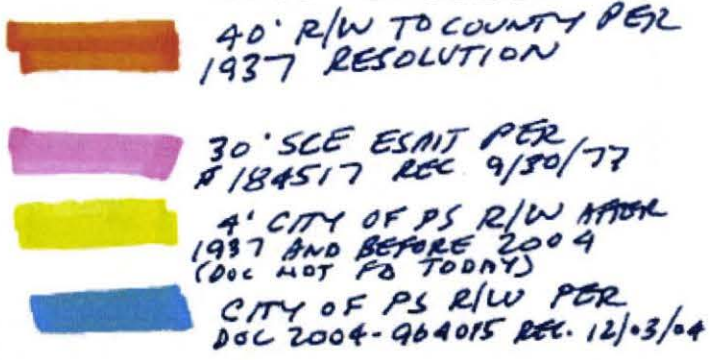 40' R/W TO COUNTY PER
1937 RESOLUTION
30' SCE ESMT PER
# 184517 REC 9/30/77
4' CITY OF PS R/W AFTER
1937 AND BEFORE 2004
(DOC NOT FD TODAY)
CITY OF PS R/W PER
DOC 2004-964015 REC. 12/03/04